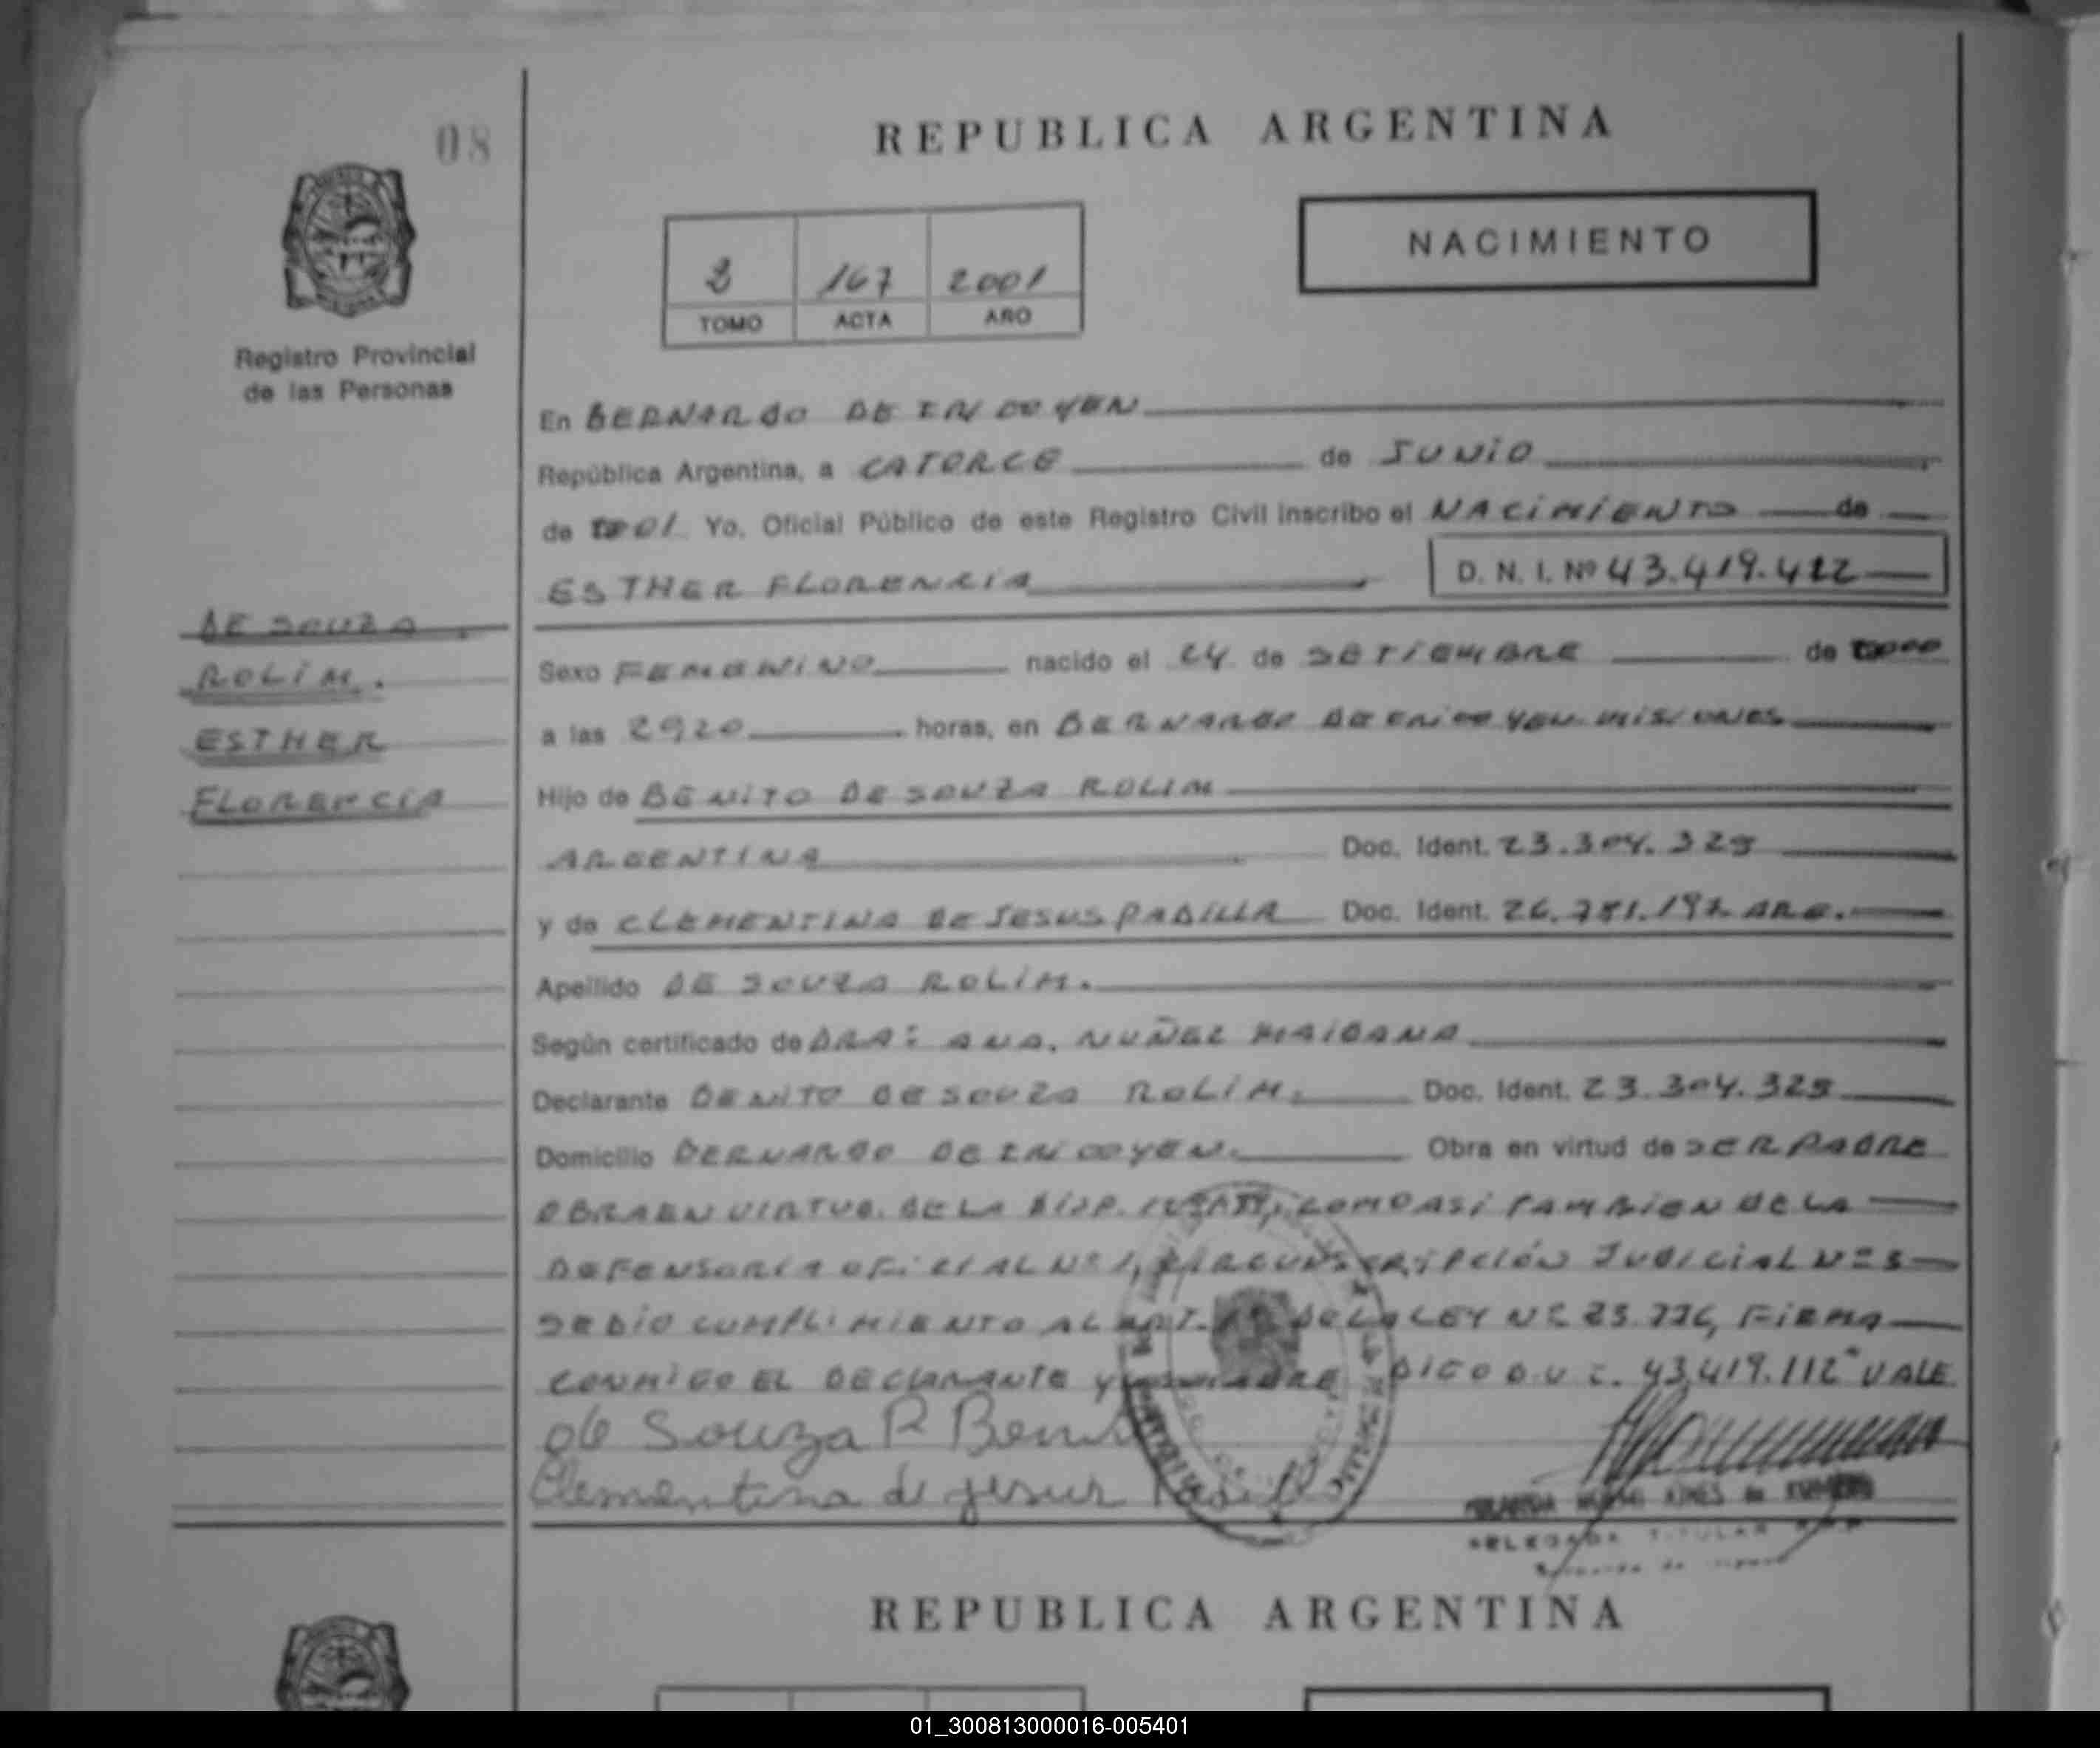 08
REPUBLICA ARGENTINA
NACIMIENTO
2 167 2001
TOMO ACTA AÑO
Registro Provincial
de las Personas
En BERNARDO DE IRIGOYEN
República Argentina, a CATORCE de JUNIO
de 2001 Yo, Oficial Público de este Registro Civil inscribo el NACIMIENTO de
ESTHER FLORENCIA D. N. I. Nº 43.419.422
DE SOUZA
ROLIM.
ESTHER
FLORENCIA
Sexo FEMENINO nacido el 24 de SETIEMBRE de
a las 2920 horas, en BERNARDO DE IRIGOYEN MISIONES
Hijo de BENITO DE SOUZA ROLIM
ARGENTINA Doc. Ident. 23.304.329
y de CLEMENTINA DE JESUS PADILLA Doc. Ident. ARG.
Apellido DE SOUZA ROLIM.
Según certificado de DRA: ANA. NUÑEZ
Declarante BENITO DE SOUZA ROLIM. Doc. Ident. 23.304.329
Domicilio BERNARDO DE IRIGOYEN. Obra en virtud de SER PADRE
OBRA EN VIRTUD. DE LA DISP. COMO ASI TAMBIEN DE LA
DEFENSORIA OFICIAL Nº 1, CIRCUNSCRIPCIÓN JUDICIAL Nº 3
SE DIO CUMPLIMIENTO AL ART. DE LA LEY Nº FIRMA
CONMIGO EL DECLARANTE Y DIGO D.U.I. 43.419.112" VALE
de Souza R Benito
Clementina de jesus Padilla
DELEGADA TITULAR
REPUBLICA ARGENTINA
01_300813000016-005401